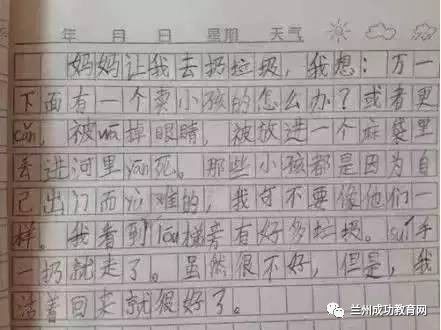 年 月 日 星期 天气
妈妈让我去扔垃圾，我想：万一
下面有一个卖小孩的怎么办？或者更
cǎn，被wā掉眼睛，被放进一个麻袋里
丢进河里yān死。那些小孩都是因为自
己出门而yù难的，我可不要像他们一
样。我看到lóu梯旁有好多垃圾。suí手
一扔就走了。虽然很不好，但是，我
活着回来就很好了。
兰州成功教育网